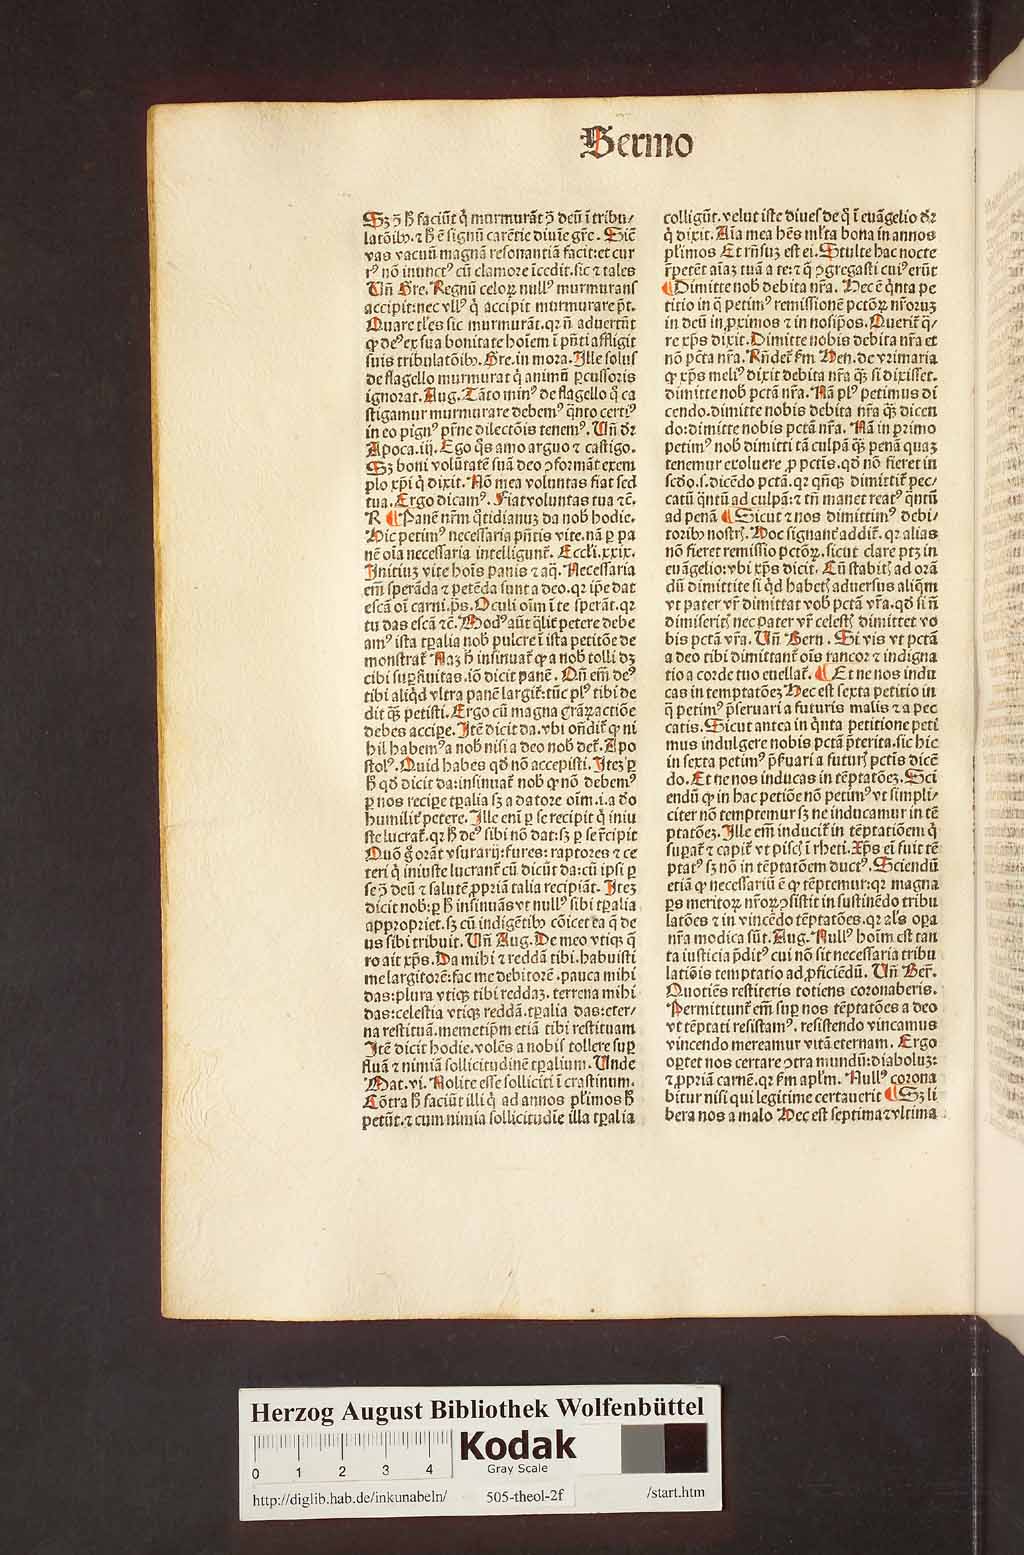 Sermo
Sꝫ ↄ̄ ħ faciūt q̇ murmurāt ↄ̄ deū ī tribu⸗
latōibꝰ. ⁊ ħ ē signū carētie diuīe gr̄e. Sic̄
vas vacuū magnā resonantiā facit: et cur
rꝰ nō inunctꝰ cū clamore īcedit. sic ⁊ tales
Un̄ Gre. Regnū celoꝝ nullꝰ murmurans
accipit: nec vllꝰ q̇ accipit murmurare pt̄.
Quare tl̄es sic murmurāt. qꝛ n̄ aduertūt
ꝙ deꝰ ex sua bonitate hoīem ī pn̄ti affligit
suis tribulatōibꝰ. Gre. in mora. Ille solus
de flagello murmurat q̇ animū ꝑcussoris
ignorat. Aug. Tāto minꝰ de flagello q̇ ca
stigamur murmurare debemꝰ q̈nto certiꝰ
in eo pignꝰ pr̄ne dilectōis tenemꝰ. Un̄ dr̄
Apoca. iij. Ego q̊s amo arguo ⁊ castigo.
Sꝫ boni volūtatē suā deo ↄformāt exem
plo xp̄i q̇ dixit. Nō mea voluntas fiat sed
tua. Ergo dicamꝰ. Fiat voluntas tua ⁊c̄.
R ¶ Panē nr̄m q̊tidianuꝫ da nob̄ hodie.
Hic petimꝰ necessaria pn̄tis vite. nā ꝑ pa
nē oīa necessaria intelligunt᷑. Eccl̄i. xxix.
Initiuꝫ vite hoīs panis ⁊ aq̄. Necessaria
em̄ sperāda ⁊ petēda sunt a deo. qꝛ ip̄e dat
escā oī carni. ps̄. Oculi oīm ī te sperāt. qꝛ
tu das escā ⁊c̄. Modꝰ aūt q̈lit᷑ petere debe
amꝰ ista tꝑalia nob̄ pulcre ī ista petitōe de
monstrat᷑ Naꝫ ħ insinuat᷑ ꝙ a nob̄ tolli dꝫ
cibi suꝑfluitas. iō dicit panē. Qn̄ em̄ deꝰ
tibi aliq̇d vltra panē largit᷑: tūc plꝰ tibi de
dit q̄ꝫ petisti. Ergo cū magna gr̄aꝝ actiōe
debes accipe. Itē dicit da. vbi on̄dit᷑ ꝙ ni
hil habemꝰ a nob̄ nisi a deo nob̄ det᷑. Apo
stolꝰ. Quid habes qd̄ nō accepisti. Iteꝫ ꝑ
ħ qd̄ dicit da: insinuat᷑ nob̄ ꝙ nō debemꝰ
ꝑ nos recipe tꝑalia sꝫ a datore oīm. i. a dō
humilit᷑ petere. Ille eni ꝑ se recipit q̇ iniu
ste lucrat᷑. qꝛ ħ deꝰ sibi nō dat: sꝫ ꝑ se r̄cipit
Quō g̊ orāt vsurarij: fures: raptores ⁊ ce
teri q̇ iniuste lucrant᷑ cū dicūt da: cū ipsi ꝑ
se ↄ̄ deū ⁊ salutē ꝓpriā talia recipiāt. Iteꝫ
dicit nob̄: ꝑ ħ insinuās vt nullꝰ sibi tꝑalia
appropriet. sꝫ cū indigētibꝰ cōicet ea q̄ de
us sibi tribuit. Un̄ Aug. De meo vtiqꝫ q̄
ro ait xp̄s. Da mihi ⁊ reddā tibi. habuisti
me largitorē: fac me debitorē. pauca mihi
das: plura vtiqꝫ tibi reddaꝫ. terrena mihi
das: celestia vtiqꝫ reddā. tꝑalia das: eter⸗
na restituā. memetip̄m etiā tibi restituam
Itē dicit hodie. volēs a nobis tollere suꝑ
fluā ⁊ nimiā sollicitudinē tꝑalium. Unde
Mat. vi. Nolite esse solliciti ī crastinum.
Cōtra ħ faciūt illi q̇ ad annos pl̄imos ħ
petūt. ⁊ cum nimia sollicitudīe illa tꝑalia
colligūt. velut iste diues de q̊ ī euāgelio dr̄
q̇ dixit. Aīa mea hēs ml̄ta bona in annos
pl̄imos Et rn̄suꝫ est ei. Stulte hac nocte
r̄petēt aīaꝫ tuā a te: ⁊ q̄ ↄgregasti cuiꝰ erūt
¶ Dimitte nob̄ debita nr̄a. Hec ē q̇nta pe
titio in q̄ petimꝰ remissionē pctōꝝ nr̄oruꝫ
in deū in ꝓximos ⁊ in nosip̄os. Querit᷑ q̈⸗
re xp̄s dixit. Dimitte nobis debita nr̄a et
nō pctā nr̄a. Rn̄det᷑ fm̄ Hen. de vrimaria
ꝙ xp̄s meliꝰ dixit debita nr̄a q̄ꝫ si dixisset.
dimitte nob̄ pctā nr̄a. Nā plꝰ petimus di
cendo. dimitte nobis debita nr̄a q̄ꝫ dicen
do: dimitte nobis pctā nr̄a. Nā in primo
petimꝰ nob̄ dimitti tā culpā q̄ꝫ penā quaꝫ
tenemur exoluere ꝓ pctīs. qd̄ nō fieret in
scd̄o. s. dicēdo pctā. qꝛ qn̄qꝫ dimittit᷑ pec⸗
catū q̈ntū ad culpā: ⁊ tn̄ manet reatꝰ q̈ntū
ad penā ¶ Sicut ⁊ nos dimittimꝰ debi⸗
toribꝰ nostrꝭ. Hoc signant᷑ addit᷑. qꝛ alias
nō fieret remissio pctōꝝ. sicut clare ptꝫ in
euāgelio: vbi xp̄s dicit. Cū stabitꝭ ad orā
dū dimittite si q̇d habetꝭ aduersus aliq̄m
vt pater vr̄ dimittat vob̄ pctā vr̄a. qd̄ si n̄
dimiseritꝭ nec pater vr̄ celestꝭ dimittet vo
bis pctā vr̄a. Un̄ Bern. Si vis vt pctā
a deo tibi dimittant᷑ oīs rancor ⁊ indigna
tio a corde tuo euellat᷑. ¶ Et ne nos indu
cas in temptatōeꝫ Hec est sexta petitio in
q̄ petimꝰ p̄seruari a futuris malis ⁊ a pec
catis. Sicut antea in q̇nta petitione peti
mus indulgere nobis pctā p̄terita. sic hic
in sexta petimꝰ p̄fuari a futurꝭ pctīs dicē
do. Et ne nos inducas in tēptatōeꝫ. Sci
endū ꝙ in hac petiōe nō petimꝰ vt simpli⸗
citer nō temptemur sꝫ ne inducamur in tē
ptatōeꝫ. Ille em̄ inducit᷑ in tēptatiōem q̇
suꝑat᷑ ⁊ capit᷑ vt piscꝭ ī rheti. Xp̄s ei fuit tē
ptatꝰ sꝫ nō in tēptatōem ductꝰ. Sciendū
etiā ꝙ necessariū ē ꝙ tēptemur: qꝛ magna
ꝑs meritoꝝ nr̄oꝝ ↄsistit in sustinēdo tribu
latōes ⁊ in vincēdo tēptatōes. qꝛ al̄s oꝑa
nr̄a modica sūt. Aug. Nullꝰ hoīm est tan
ta iusticia p̄ditꝰ cui nō sit necessaria tribu
latiōis temptatio ad ꝓficiēdū. Un̄ Ber̄.
Quotiēs restiteris totiens coronaberis.
Permittunt᷑ em̄ suꝑ nos tēptatōes a deo
vt tēptati resistamꝰ. resistendo vincamus
vincendo mereamur vitā eternam. Ergo
oꝑtet nos certare ↄtra mundū: diaboluꝫ:
⁊ ꝓpriā carnē. qꝛ fm̄ apl̄m. Nullꝰ corona
bitur nisi qui legitime certauerit ¶ Sꝫ li
bera nos a malo Hec est septima ⁊ vltima
Herzog August Bibliothek Wolfenbüttel
0 1 2 3 4
Kodak
Gray Scale
http://diglib.hab.de/inkunabeln/ 505-theol-2f /start.htm